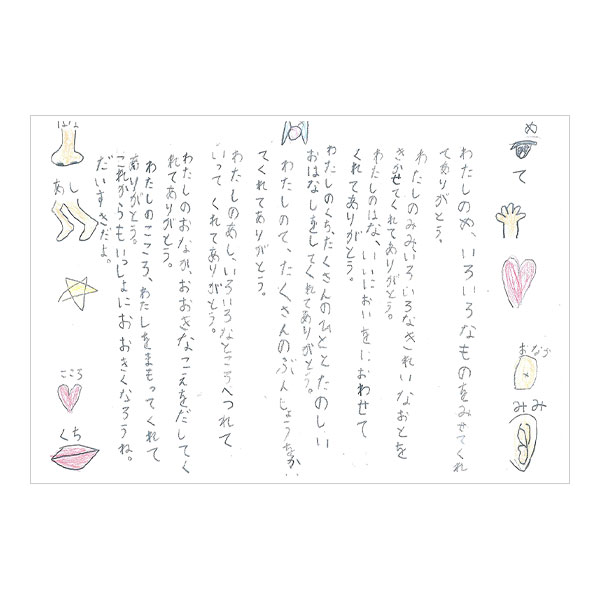 わたしのめ、いろいろなものをみせてくれ
てありがとう。
わたしのみみ、いろいろなきれいなおとを
きかせてくれてありがとう。
わたしのはな、いいにおいをにおわせて
くれてありがとう。
わたしのくち、たくさんのひととたのしい
おはなしをしてくれてありがとう。
わたしのて、たくさんのぶんしょうをかい
てくれてありがとう。
わたしのあし、いろいろなところへつれて
いって くれてありがとう。
わたしのおなか、おおきなこえをだしてく
れてありがとう。
わたしのこころ、わたしをまもってくれて
ありがとう。
これからもいっしょにおおきくなろうね。
だいすきだよ。
め
て
おなか
みみ
はな
あし
こころ
くち